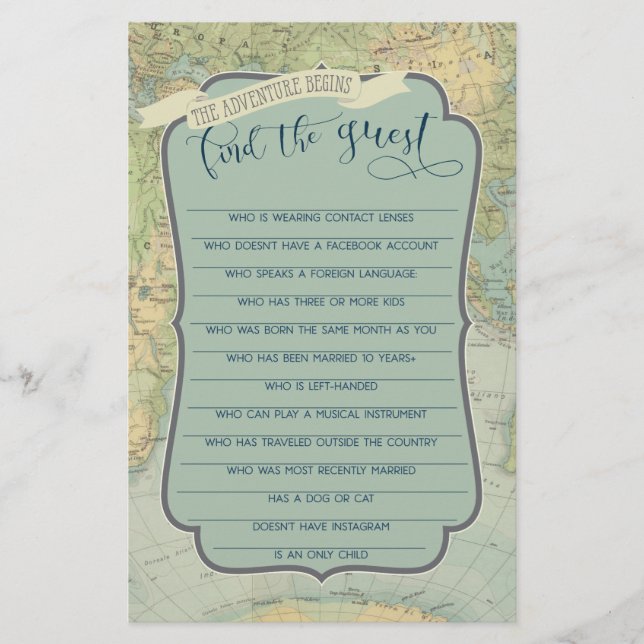 EUROPA
THE ADVENTURE BEGINS
find the guest
WHO IS WEARING CONTACT LENSES
WHO DOESN'T HAVE A FACEBOOK ACCOUNT
WHO SPEAKS A FOREIGN LANGUAGE:
WHO HAS THREE OR MORE KIDS
WHO WAS BORN THE SAME MONTH AS YOU
WHO HAS BEEN MARRIED 10 YEARS+
WHO IS LEFT-HANDED
WHO CAN PLAY A MUSICAL INSTRUMENT
WHO HAS TRAVELED OUTSIDE THE COUNTRY
WHO WAS MOST RECENTLY MARRIED
HAS A DOG OR CAT
DOESN'T HAVE INSTAGRAM
IS AN ONLY CHILD